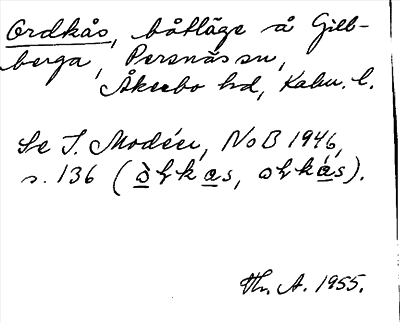 Ordkås, båtläge å Gill-
berga, Persnäs sn,
Åkerbo hd, Kalm. l.
Se I. Modéer, NoB 1946,
s. 136 (
Hn. A. 1955.